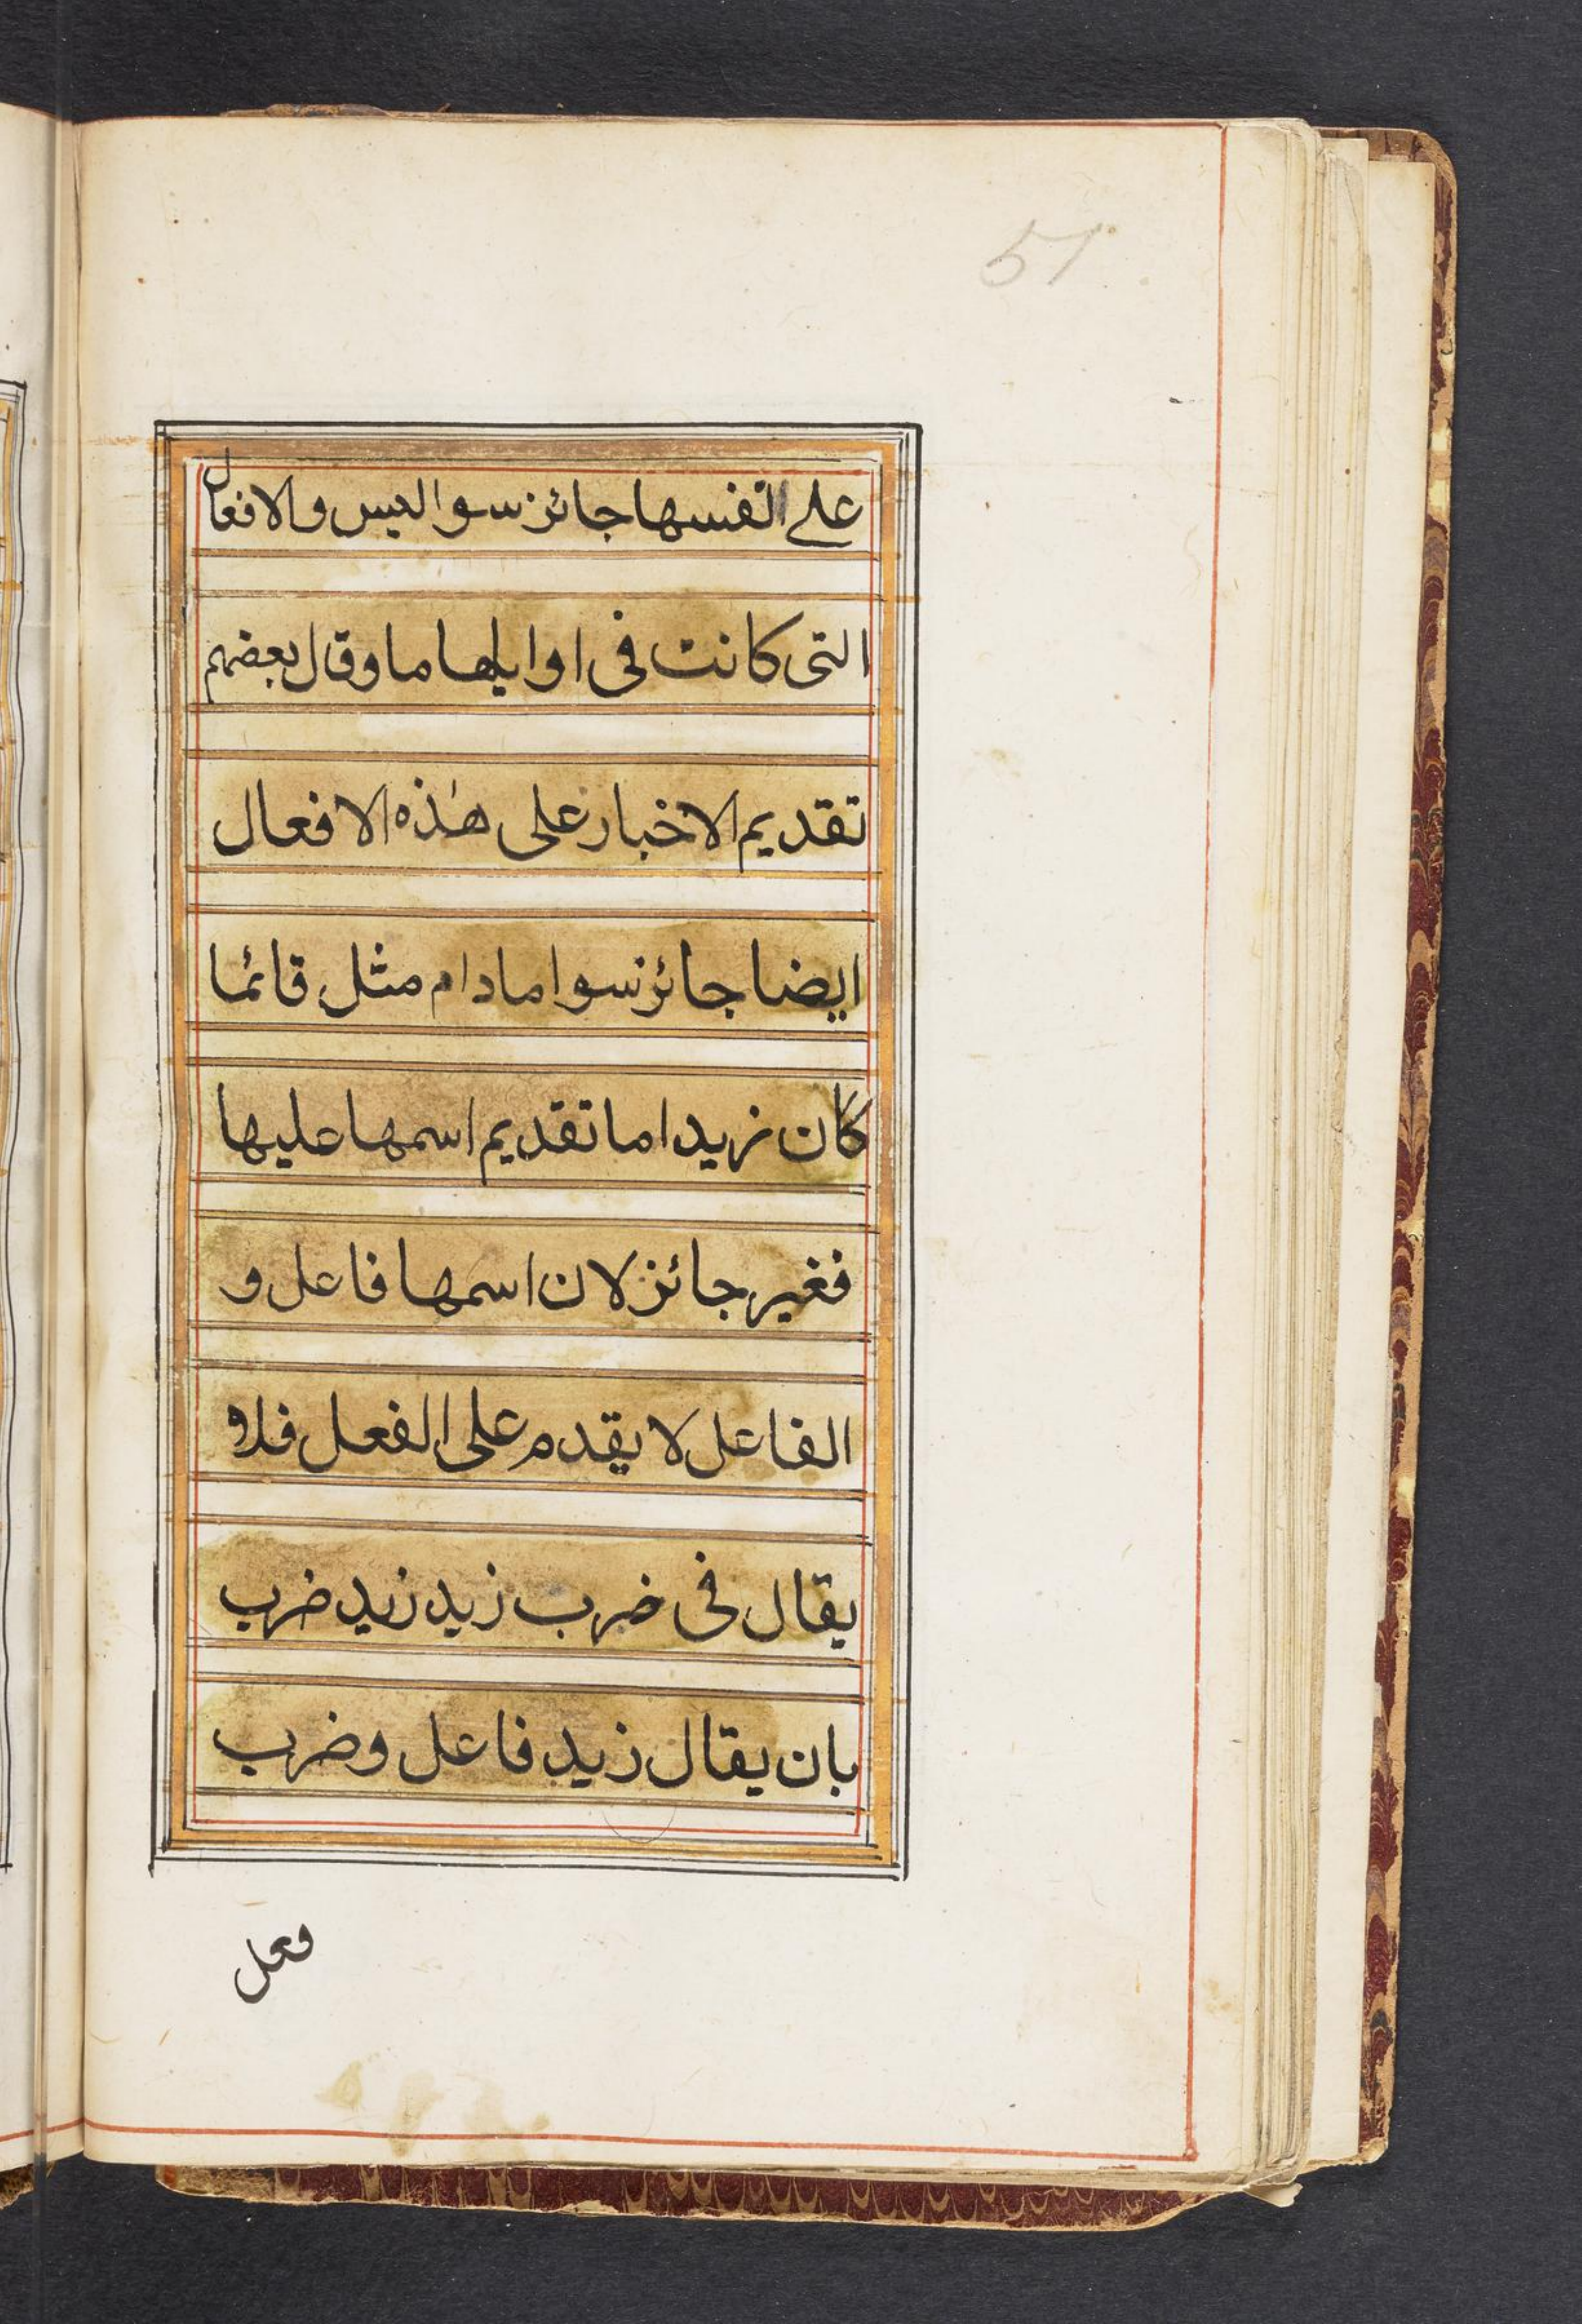 51
على انفسها جائز سوا ليس والافعال
التى كانت فى اوايلها ما وقال بعضهم
تقديم الاخبار على هذه الافعال
ايضا جائز سوا مادام مثل قائما
كان زيد اما تقديم اسمها عليها
فغير جائز لان اسمها فاعل و
الفاعل لا يقدم على الفعل فلا
يقال فى ضرب زيد زيد ضرب
بان يقال زيد فاعل وضرب
فعل